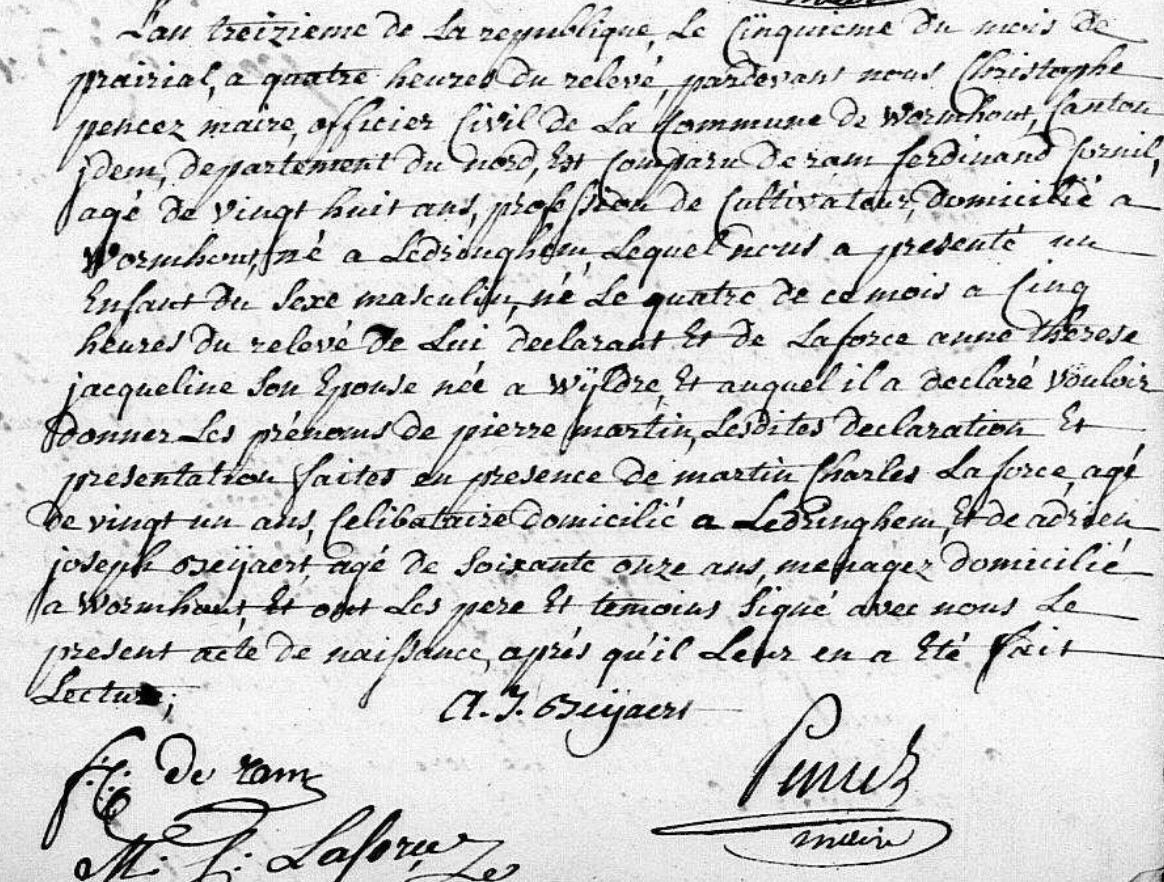 L'an treizieme de La republique, Le Cinquieme du mois de
prairial, a quatre heures du relevé, pardevant nous Christophe
pencez maire, officier Civil de La Commune de Wormhout, Canton
jdem, departement du nord, Est Comparu de ram ferdinand Cornil,
agé de vingt huit ans, profession de Cultivateur, domicilié a
Wormhout, né a Ledringhem, Lequel nous a presenté un
Enfant du Sexe masculin, né Le quatre de ce mois a Cinq
heures du relevé de Lui declarant Et de Laforce anne thérese
jacqueline Son Epouse née a Wÿldre, Et auquel il a declaré vouloir
donner Les prénoms de pierre martin, Lesdites declaration Et
presentation faites en presence de martin Charles Laforce, agé
de vingt un ans, Celibataire domicilié a Ledringhem, Et de adrien
joseph Beÿaert agé de Soixante onze ans, menager domicilié
a Wormhout, Et ont Les pere Et temoins Signé avec nous Le
present acte de naissance, aprés qu'il Leur en a Eté fait
Lecture;
A. J. Beÿaert
f: C: de ram
Pencez
M: C: Laforce
maire